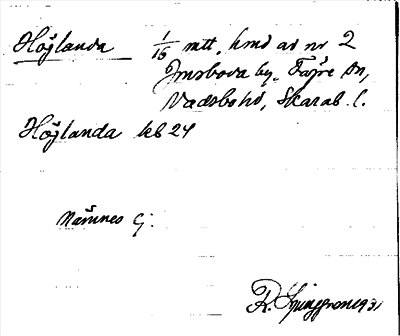 Höjlanda 1/16 mtt, hmd av nr 2
Imsboda by, Fägre sn,
Vadsbo hd, Skarab. l.
Höjlanda kb 24
Namnes Ej:
R. Ljunggren 1931